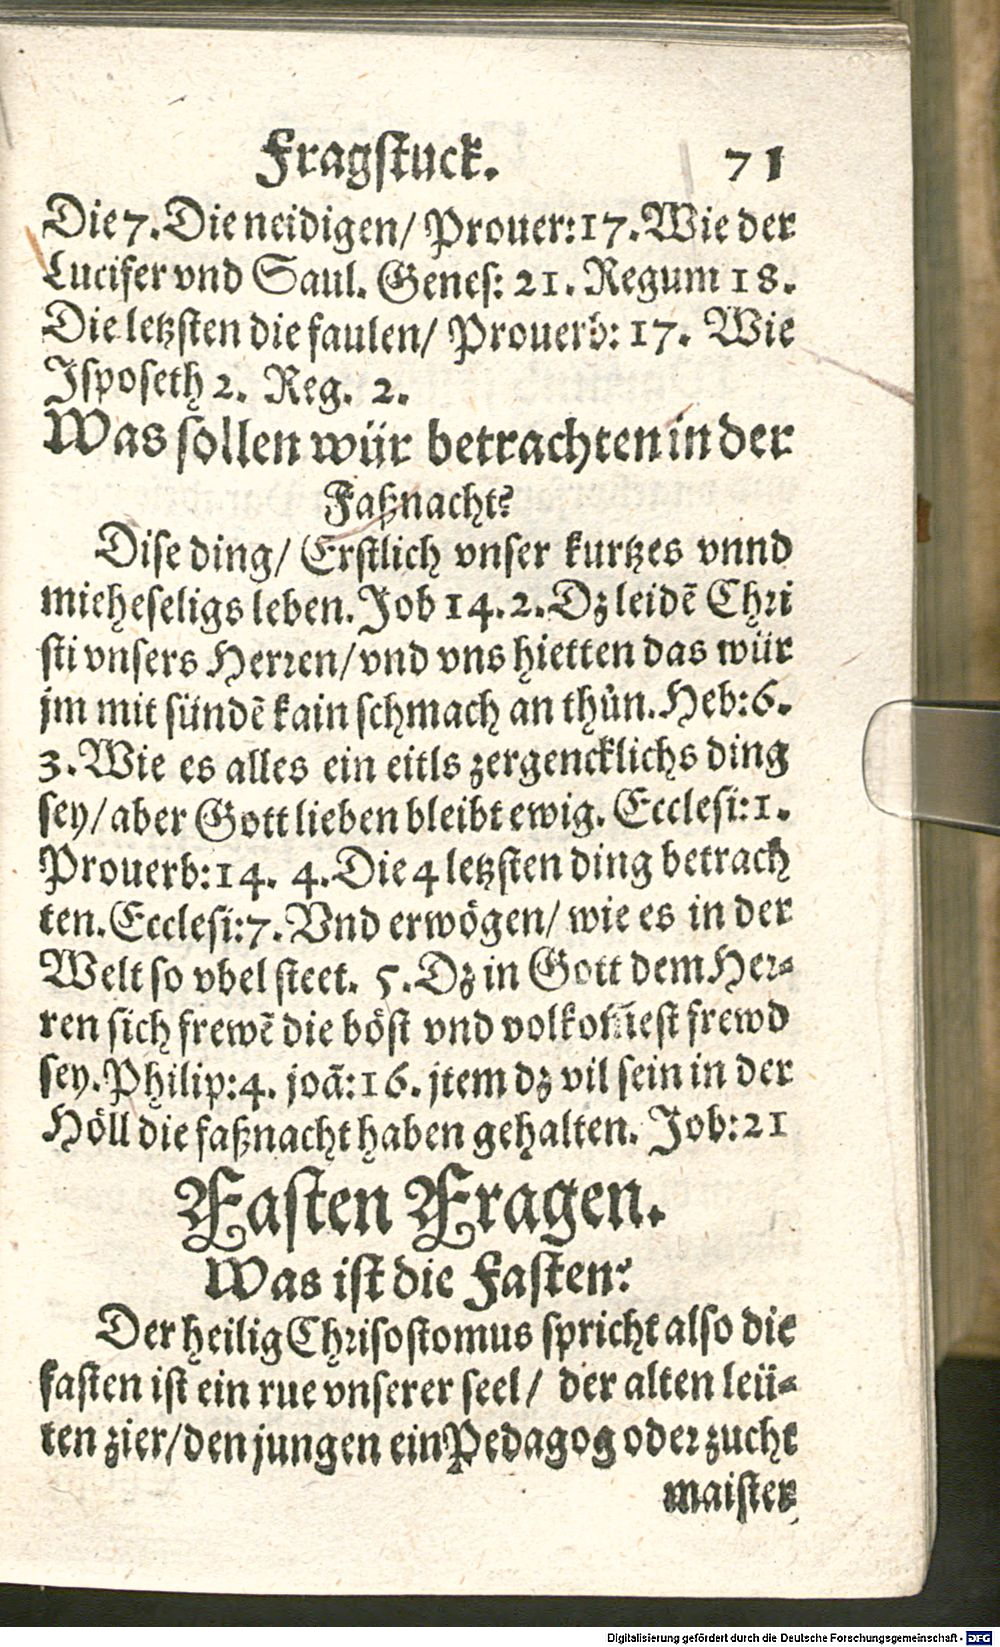 Fragstuck. 71
Die 7. Die neidigen/ Prouer: 17. Wie der
Lucifer vnd Saul. Genes: 21. Regum 18.
Die letzsten die faulen/ Prouerb: 17. Wie
Jsposeth 2. Reg. 2.
Was sollen wür betrachten in der
Faßnacht?
Dise ding/ Erstlich vnser kurtzes vnnd
mieheseligs leben. Job 14. 2. Dz leidē Chri
sti vnsers Herren/ vnd vns hietten das wür
jm mit sündē kain schmach an thůn. Heb: 6.
3. Wie es alles ein eitls zergencklichs ding
sey/ aber Gott lieben bleibt ewig. Ecclesi: 1.
Prouerb: 14. 4. Die 4 letzsten ding betrach
ten. Ecclesi: 7. Vnd erwögen/ wie es in der
Welt so vbel steet. 5. Dz in Gott dem Her-
ren sich frewē die böst vnd volkom̃est frewd
sey. Philip: 4. joā: 16. jtem dz vil sein in der
Höll die faßnacht haben gehalten. Job: 21
Fasten Fragen.
Was ist die Fasten?
Der heilig Chrisostomus spricht also die
fasten ist ein rue vnserer seel/ der alten leü-
ten zier/ den jungen ein Pedagog oder zucht
maister
Digitalisierung gefördert durch die Deutsche Forschungsgemeinschaft - DFG